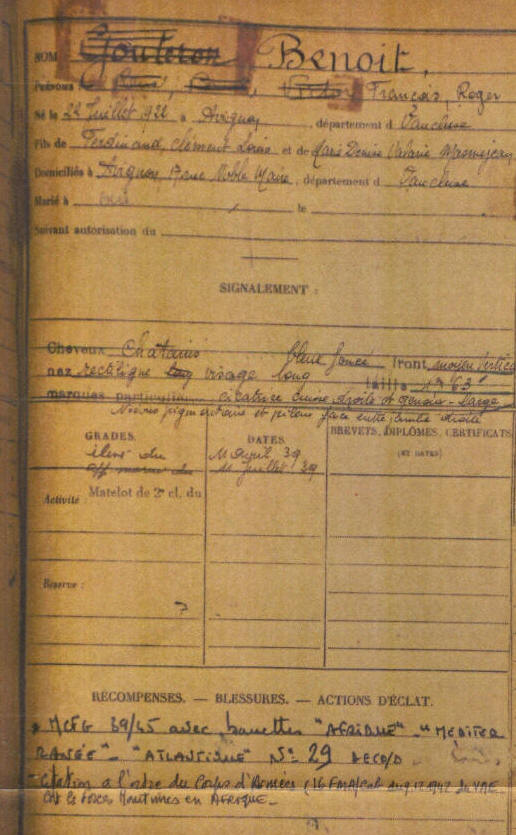 NOM Gouteron BENOIT,
Prénoms René, Victor François, Roger
Né le 22 Juillet 1922 à Avignon, département d Vaucluse
Fils de Ferdinand, Clément Louis et de Marie Denise Valérie Masmejean
Domiciliés à Avignon, 17 rue Noble Marie, département d Vaucluse
Marié à le
Suivant autorisation du
SIGNALEMENT :
Cheveux Châtains bleu foncé front moyen vertical
nez rectiligne visage long taille 1m63
marques particulières cicatrice cuisse droite et genou - large
Noevus pigmentaire et pileux face externe droite
GRADES. DATES BREVETS, DIPLÔMES, CERTIFICATS
(ET DATES)
du 11 Avril 39
du 11 Juillet 39
Activité Matelot de 2e cl. du
Réserve :
?
RÉCOMPENSES. — BLESSURES. — ACTIONS D'ÉCLAT.
MCFG 39/45 avec barrettes "AFRIQUE" - "MEDITER
RANÉE" - "ATLANTIQUE" N° 29 DECO/D
- Citation à l'ordre du Corps d'Armées (16 FMA/Cab du 9.12.1942 du VAE
Cdt les Forces Maritimes en AFRIQUE -